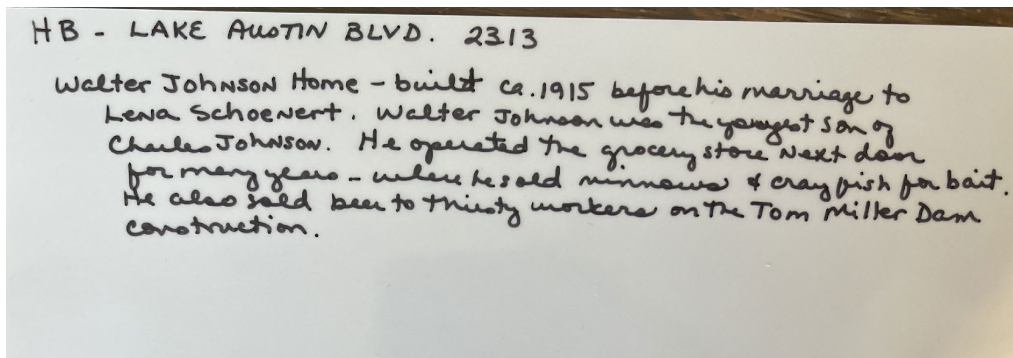 HB - LAKE AUSTIN BLVD. 2313
Walter Johnson Home - built ca. 1915 before his marriage to
Lena Schoenert. Walter Johnson was the youngest son of
Charles Johnson. He operated the grocery store next door
for many years - where he sold minnows & cray fish for bait.
He also sold beer to thirsty workers on the Tom Miller Dam
construction.